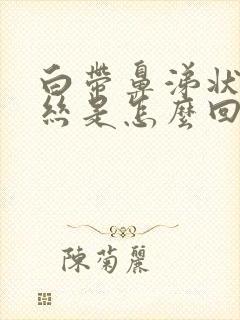 白帶鼻涕狀
絲是怎麼回
陳菊麗